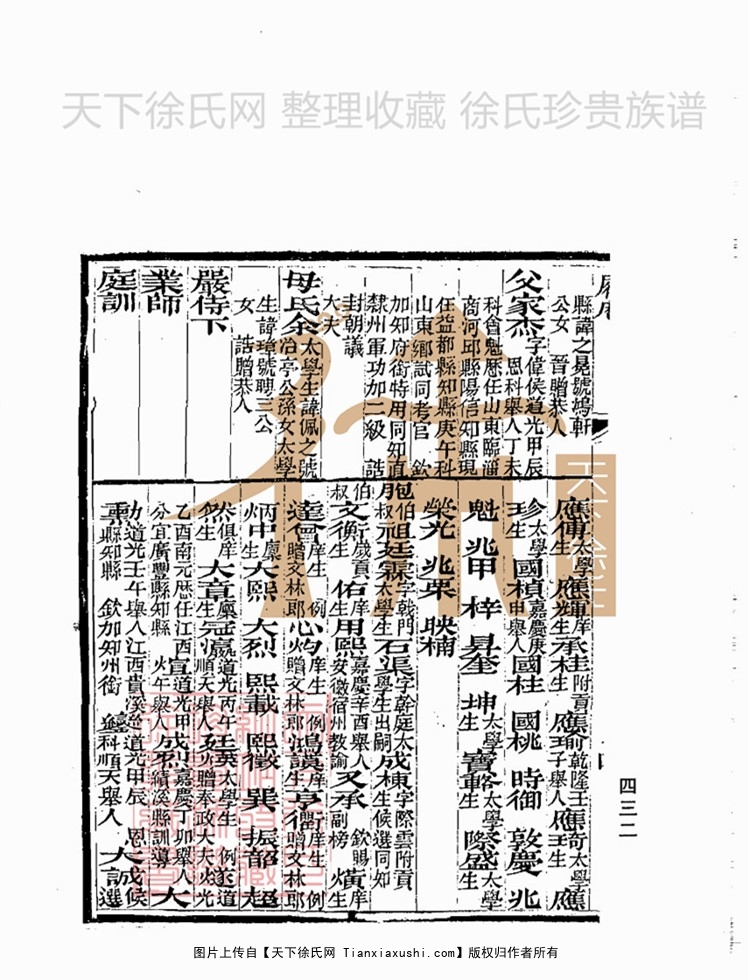 天下徐氏网 整理收藏 徐氏珍贵族谱
縣諱之晃號鳩軒
公女 晉贈恭人
父家杰字偉侯道光甲辰
恩科舉人丁未
科會魁歷任山東臨淄
商河邱縣陽信知縣現
任益都縣知縣庚午科
山東鄉試同考官 欽
加知府銜特用同知直
隸州軍功加二級 誥
封朝議
大夫
母氏余太學生諱佩之號
冶亭公孫女太學
生諱璋號聘三公
女 誥贈恭人
嚴侍下
業師
庭訓
應傳太學生 應輝庠生 承桂附貢生 應瑜乾隆壬子舉人 應珏奇太學生 應
珍太學生 國楨嘉慶庚申舉人 國桂 國桃 時御 敦慶 兆
魁 兆甲 梓 昇奎 坤太學生 寶輅太學生 際盛太學生
榮光 兆栗 映楠
胞伯叔祖廷霖字戟門太學生 石渠字幹庭太學生出嗣 成棟字際雲附貢生候選同知
伯叔文衡歲貢生 佑庠生 用熙嘉慶辛酉舉人安徽宿州教諭 又承欽賜副榜 爌庠生
達會庠生 例贈文林郎 心灼庠生 例贈文林郎 鴻謨庠生 亨衢庠生 例贈文林郎
炳中廩生 大熙 大烈 熙載 熙徵 巽 振韶 超
然俱庠生 大章廩生 冠瀛道光丙午順天舉人 廷英太學生 例贈奉政大夫 遂道光
乙酉南元歷任江西分宜廣豐縣知縣 宣道光甲午舉人 成烈嘉慶丁卯舉人績溪縣訓導 大
勳道光壬午舉人江西貴溪縣知縣 欽加知州銜 道光甲辰 恩科順天舉人 大誠候選
四三二
图片上传自【天下徐氏网 Tianxiaxushi.com】版权归作者所有